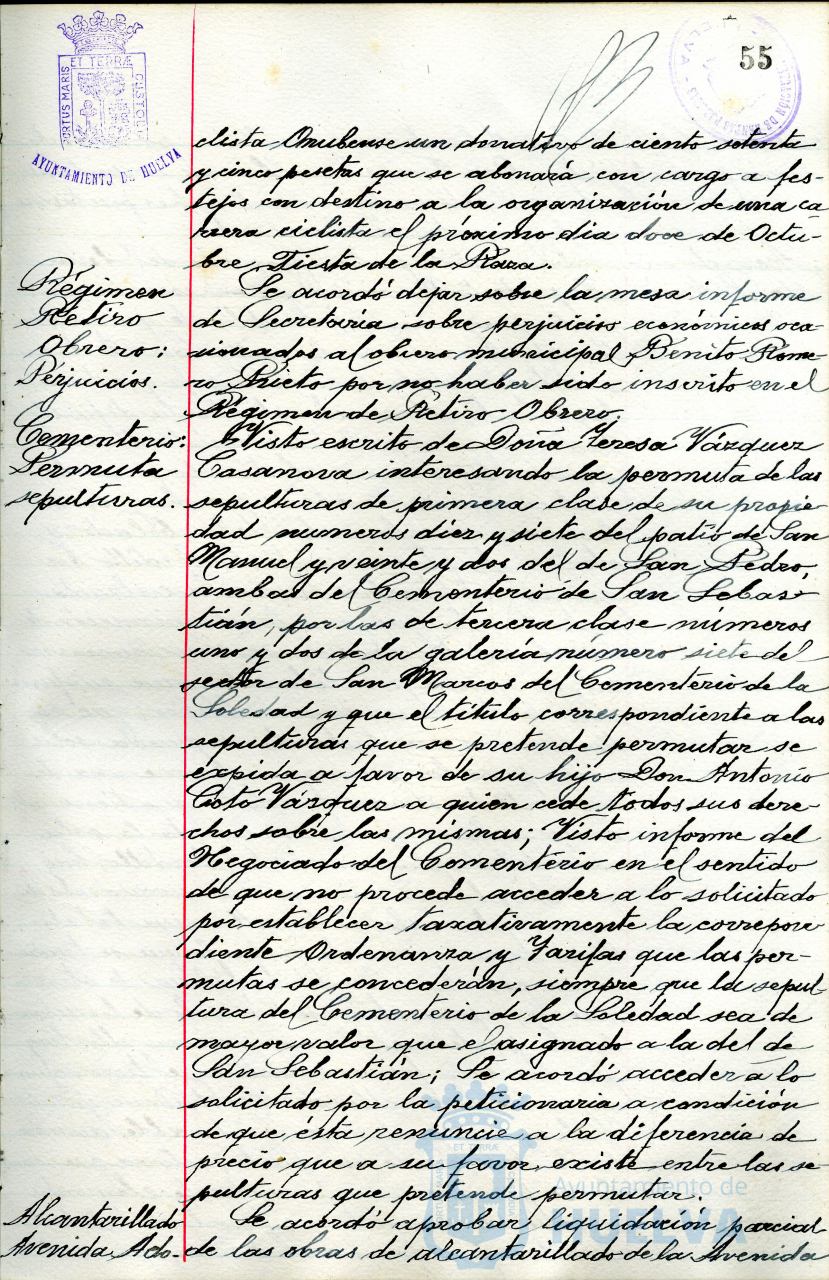 55
ET TERRÆ
PORTUS MARIS
CUSTODIA
AYUNTAMIENTO DE HUELVA
clista Onubense un donativo de ciento setenta
y cinco pesetas que se abonará con cargo a fes-
tejos con destino a la organización de una ca
rrera ciclista el próximo dia doce de Octu-
bre, Fiesta de la Raza.
Régimen
Retiro
Obrero:
Perjuicios.
Se acordó dejar sobre la mesa informe
de Secretaría sobre perjuicios económicos oca-
sionados al obrero municipal Benito Rome-
ro Prieto por no haber sido inscrito en el
Régimen de Retiro Obrero.
Cementerio:
Permuta
sepulturas.
Visto escrito de Doña Teresa Vázquez
Casanova interesando la permuta de las
sepulturas de primera clase de su propie-
dad numeros diez y siete del patio de San
Manuel y veinte y dos del de San Pedro,
ambas del Cementerio de San Sebas-
tián, por las de tercera clase números
uno y dos de la galería número siete del
sector de San Marcos del Cementerio de la
Soledad y que el título correspondiente a las
sepulturas que se pretende permutar se
expida a favor de su hijo Don Antonio
Coto Vázquez a quien cede todos sus dere-
chos sobre las mismas; Visto informe del
Negociado del Cementerio en el sentido
de que no procede acceder a lo solicitado
por establecer taxativamente la correpon-
diente Ordenanza y Tarifas que las per-
mutas se concederán, siempre que la sepul-
tura del Cementerio de la Soledad sea de
mayor valor que el asignado a la del de
San Sebastián; Se acordó acceder a lo
solicitado por la peticionaria a condición
de que ésta renuncie a la diferencia de
precio que a su favor existe entre las se-
pulturas que pretende permutar.
Alcantarillado
Avenida Ado-
Se acordó aprobar liquidación parcial
de las obras de alcantarillado de la Avenida
Ayuntamiento de
HUELVA